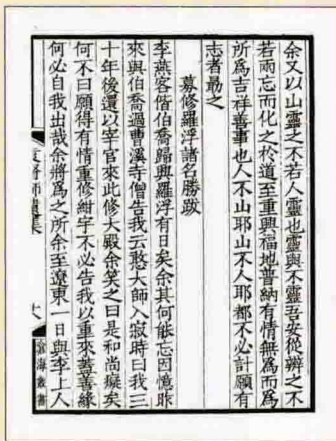 余又以山靈之不若人靈也靈與不靈吾安從辨之不
若兩忘而化之於道至重興福地普納有情無為而為
所為吉祥善事也人不山耶山不人耶都不必計願有
志者最之
募修羅浮諸名勝跋
李燕客偕伯喬歸興羅浮有日矣余其何能忘因憶昨
來與伯喬過曹溪寺僧告我云憨大師入寂時曰我三
十年後還以宰官來此修大殿余笑之曰是和尚癡矣
何不曰願得有情重修紺宇不必告我以重來善善緣
何必自我出哉余將為之所余至遼東一日與李上人
遺集
六
滄海叢書